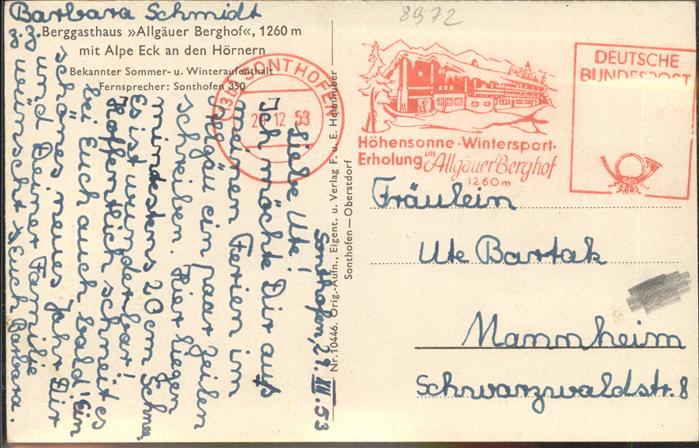 Barbara Schmidt
z. Z. Berggasthaus »Allgäuer Berghof«, 1260 m
mit Alpe Eck an den Hörnern
Bekannter Sommer- u. Winteraufenthalt
Fernsprecher: Sonthofen 350
8972
(13b) SONTHOFEN
12 53
Höhensonne · Wintersport ·
Erholung im Allgäuer Berghof
1260 m
DEUTSCHE
BUNDESPOST
Sonthofen, 29. XII. 53
Liebe Ute!
Ich möchte Dir aus
meinen Ferien im
Allgäu ein paar Zeilen
schreiben. Hier liegen
mindestens 20 cm Schnee
Es ist wunderbar!
Hoffentlich schneit es
bei Euch auch bald! Ein
schönes neues Jahr Dir
und Deiner Familie
wünscht Euch Barbara.
Nr. 10446. Orig.-Aufn., Eigent. u. Verlag F. u. E. Heimhuber
Sonthofen—Oberstdorf
Fräulein
Ute Bartak
Mannheim
Schwarzwaldstr. 8